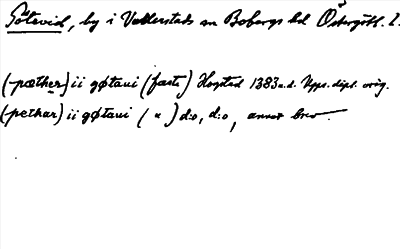 Götevid, by i Vallerstads sn Bobergs hd Östergötl. l.
(-pæther) ii gøtaui (faste) Hogstad 1383 u.d. Upps. dipl. orig.
(pethar) ii gøtaui ( " ) d:o, d:o, annat brev.